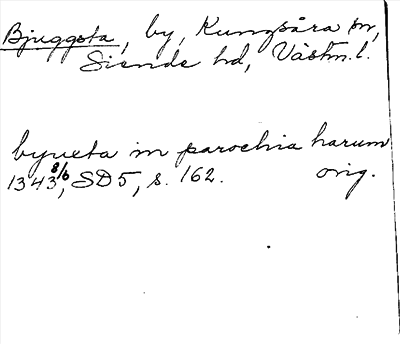 Bjuggsta, by, Kungsåra sn,
Siende hd, Västm. l.
byuesta in parochia harum
1343 8/6, SD 5, s. 162. orig.